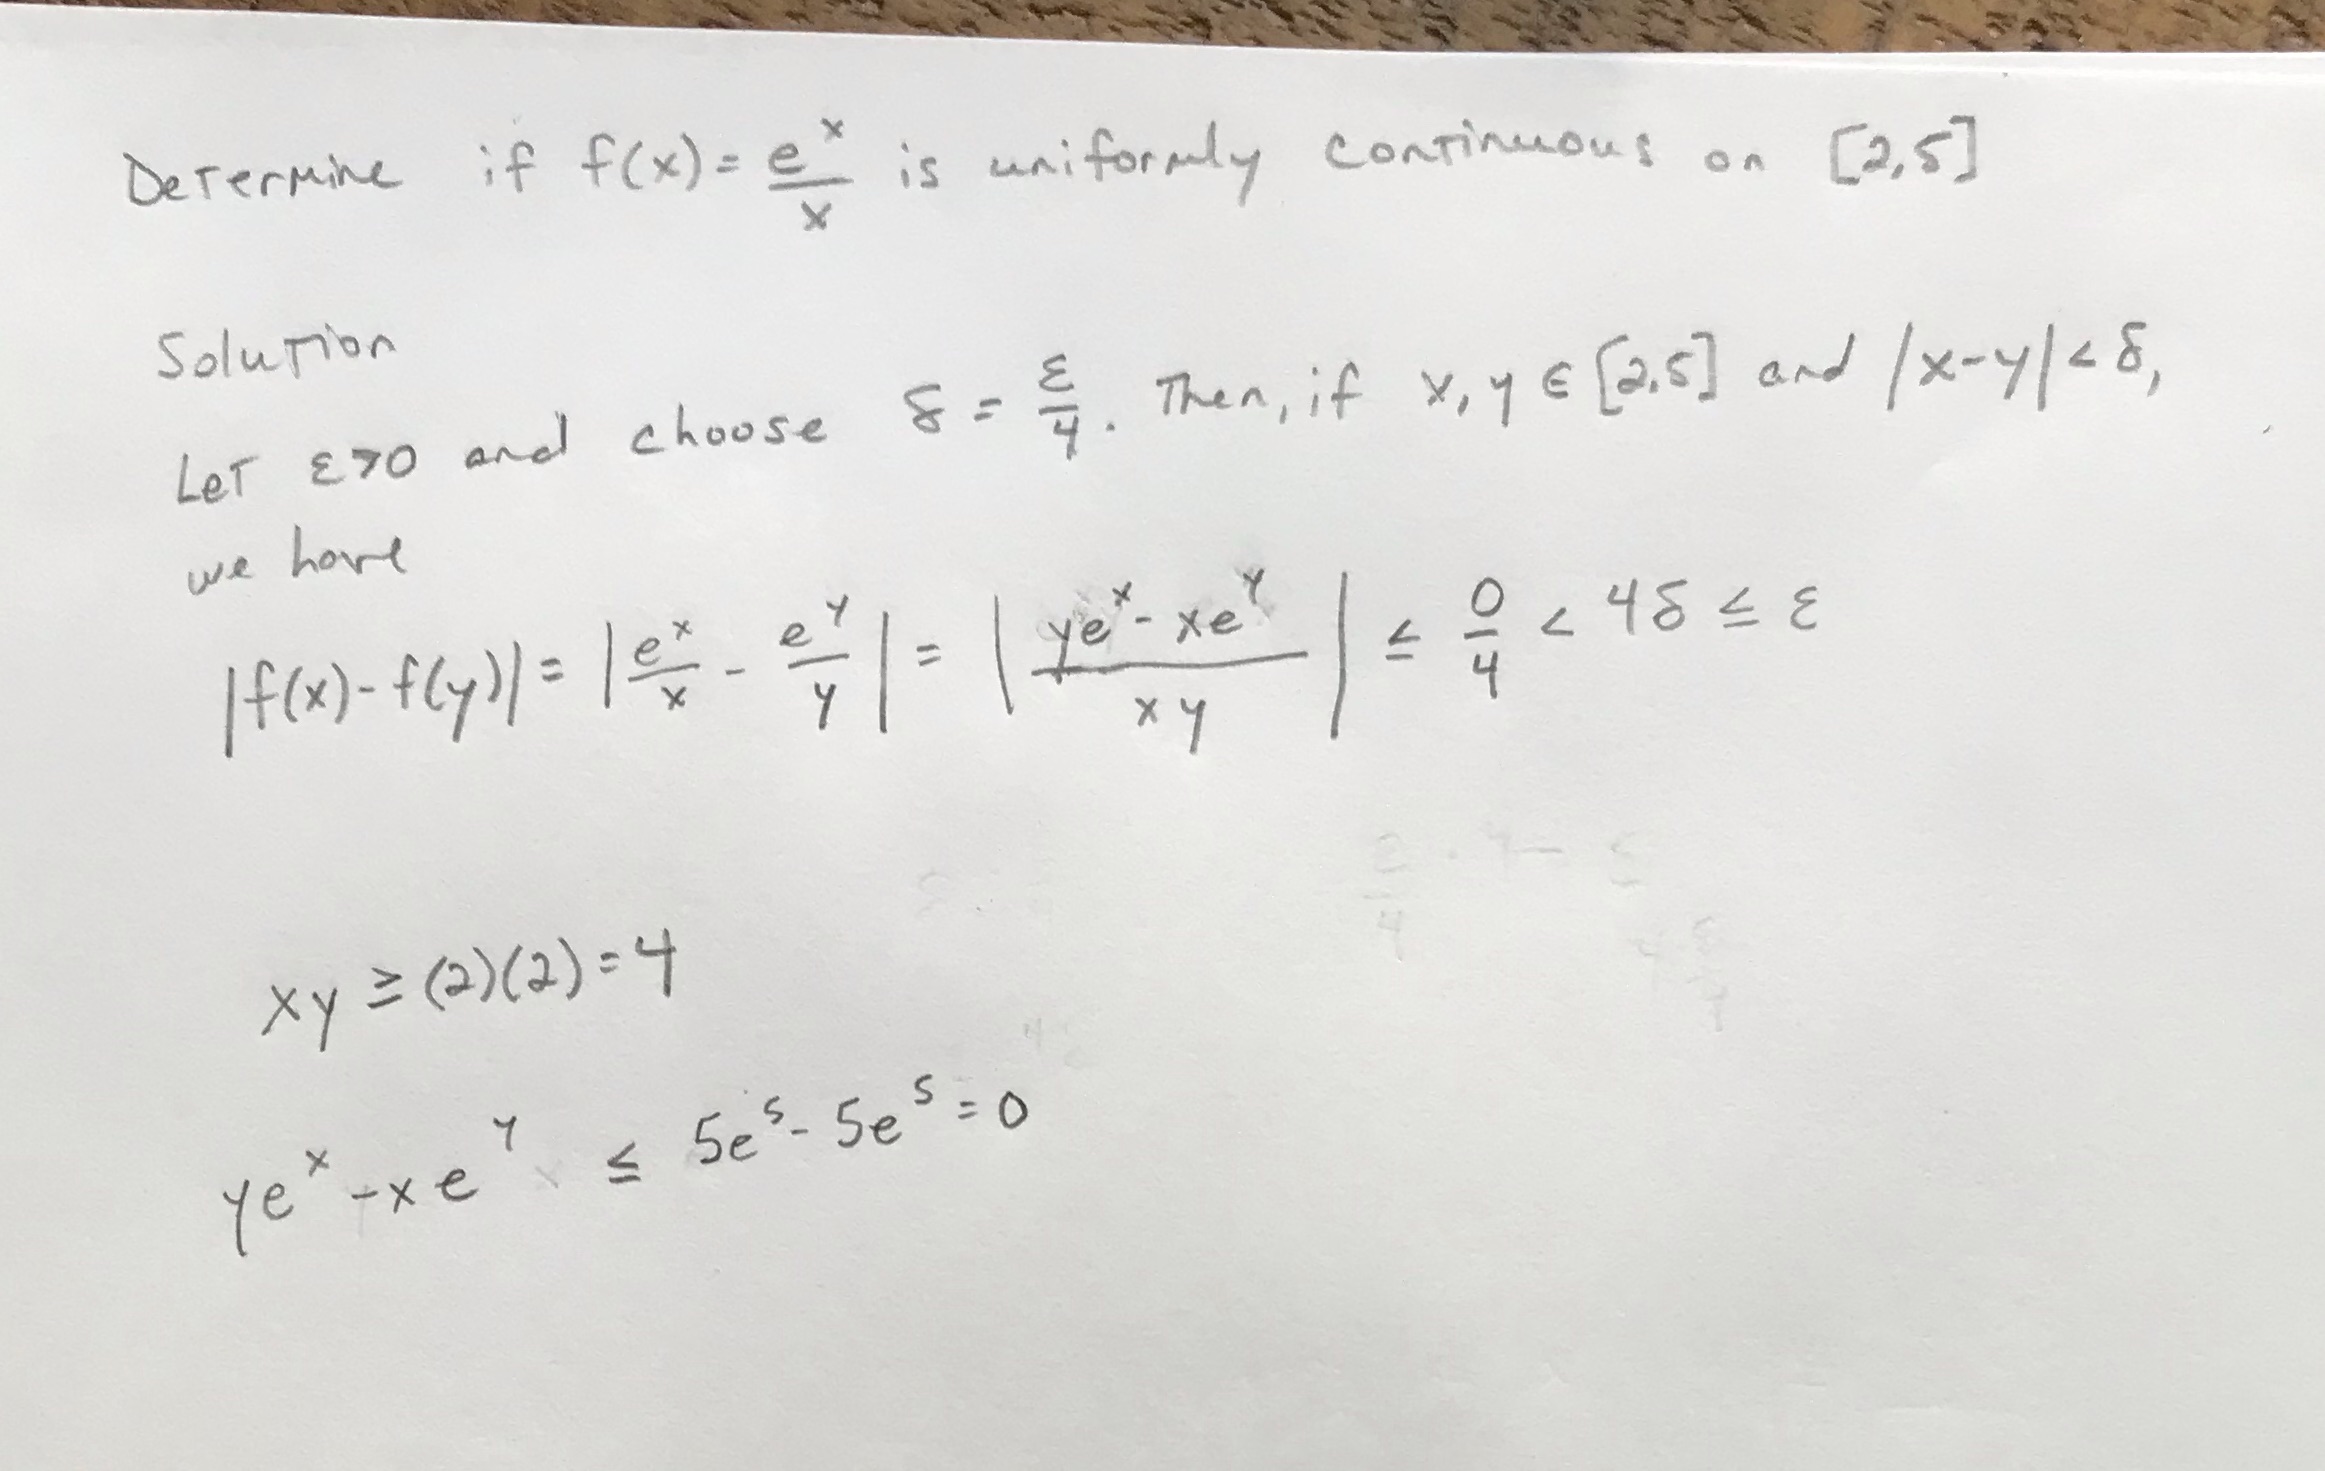 Determine if f(x) = e^x/x is uniformly continuous on [2,5]
Solution
Let ε>0 and choose δ = ε/4. Then, if x, y ∈ [2,5] and |x-y| < δ,
we have
|f(x)-f(y)| = |e^x/x - e^y/y| = |(ye^x - xe^y)/(xy)| ≤ 0/4 < 4δ ≤ ε
xy ≥ (2)(2) = 4
ye^x - xe^y ≤ 5e^5 - 5e^5 = 0